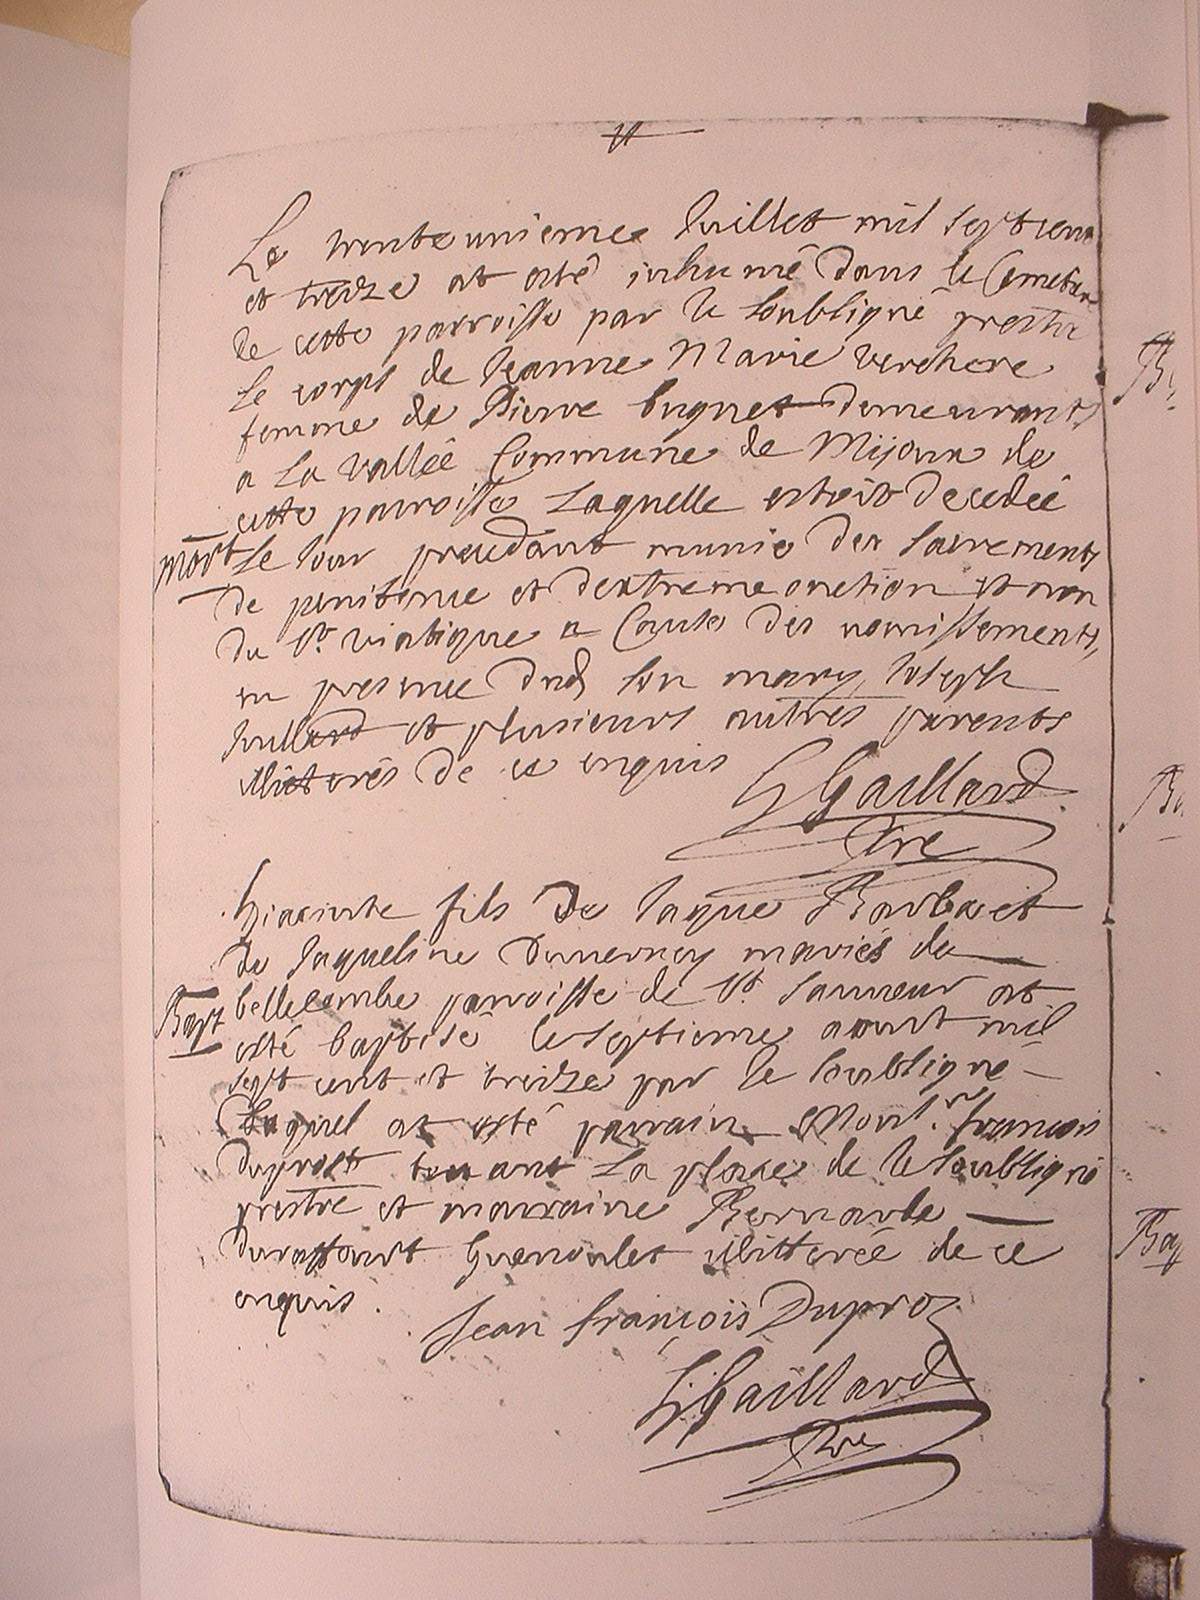 Le trente unieme Juillet mil sept cent
et treize at esté inhumé dans le Cemetiere
de cette parroisse par le soubsigné prestre
Le corps de Jeanne Marie Verchere
femme de Pierre buguet demeurants
a La vallée Commune de Mijoux de
cette parroisse Laquelle estoit decedée
mort Le Jour precedant munie des sacrements
de penitence et dextreme onction et non
du St. viatique a Cause des vomissements,
en presence dud son mary, Joseph
et plusieurs autres parents
illiterés de ce enquis
Gaillard
Pre
hiacinte fils de Jaque Barbaet
de Jaqueline Duvernay mariés de
Bapt bellecombe parroisse de St. Sauveur at
esté baptisé le septieme aoust mil
sept cent et treize par le soubsigné
Laquel at esté parrain Monsr. françois
Duprost tenant La place de le soubsigné
prestre et marraine Bernarde
Guenoulet illitterée de ce
enquis.
Jean françois Duproz
Gaillard
Pre